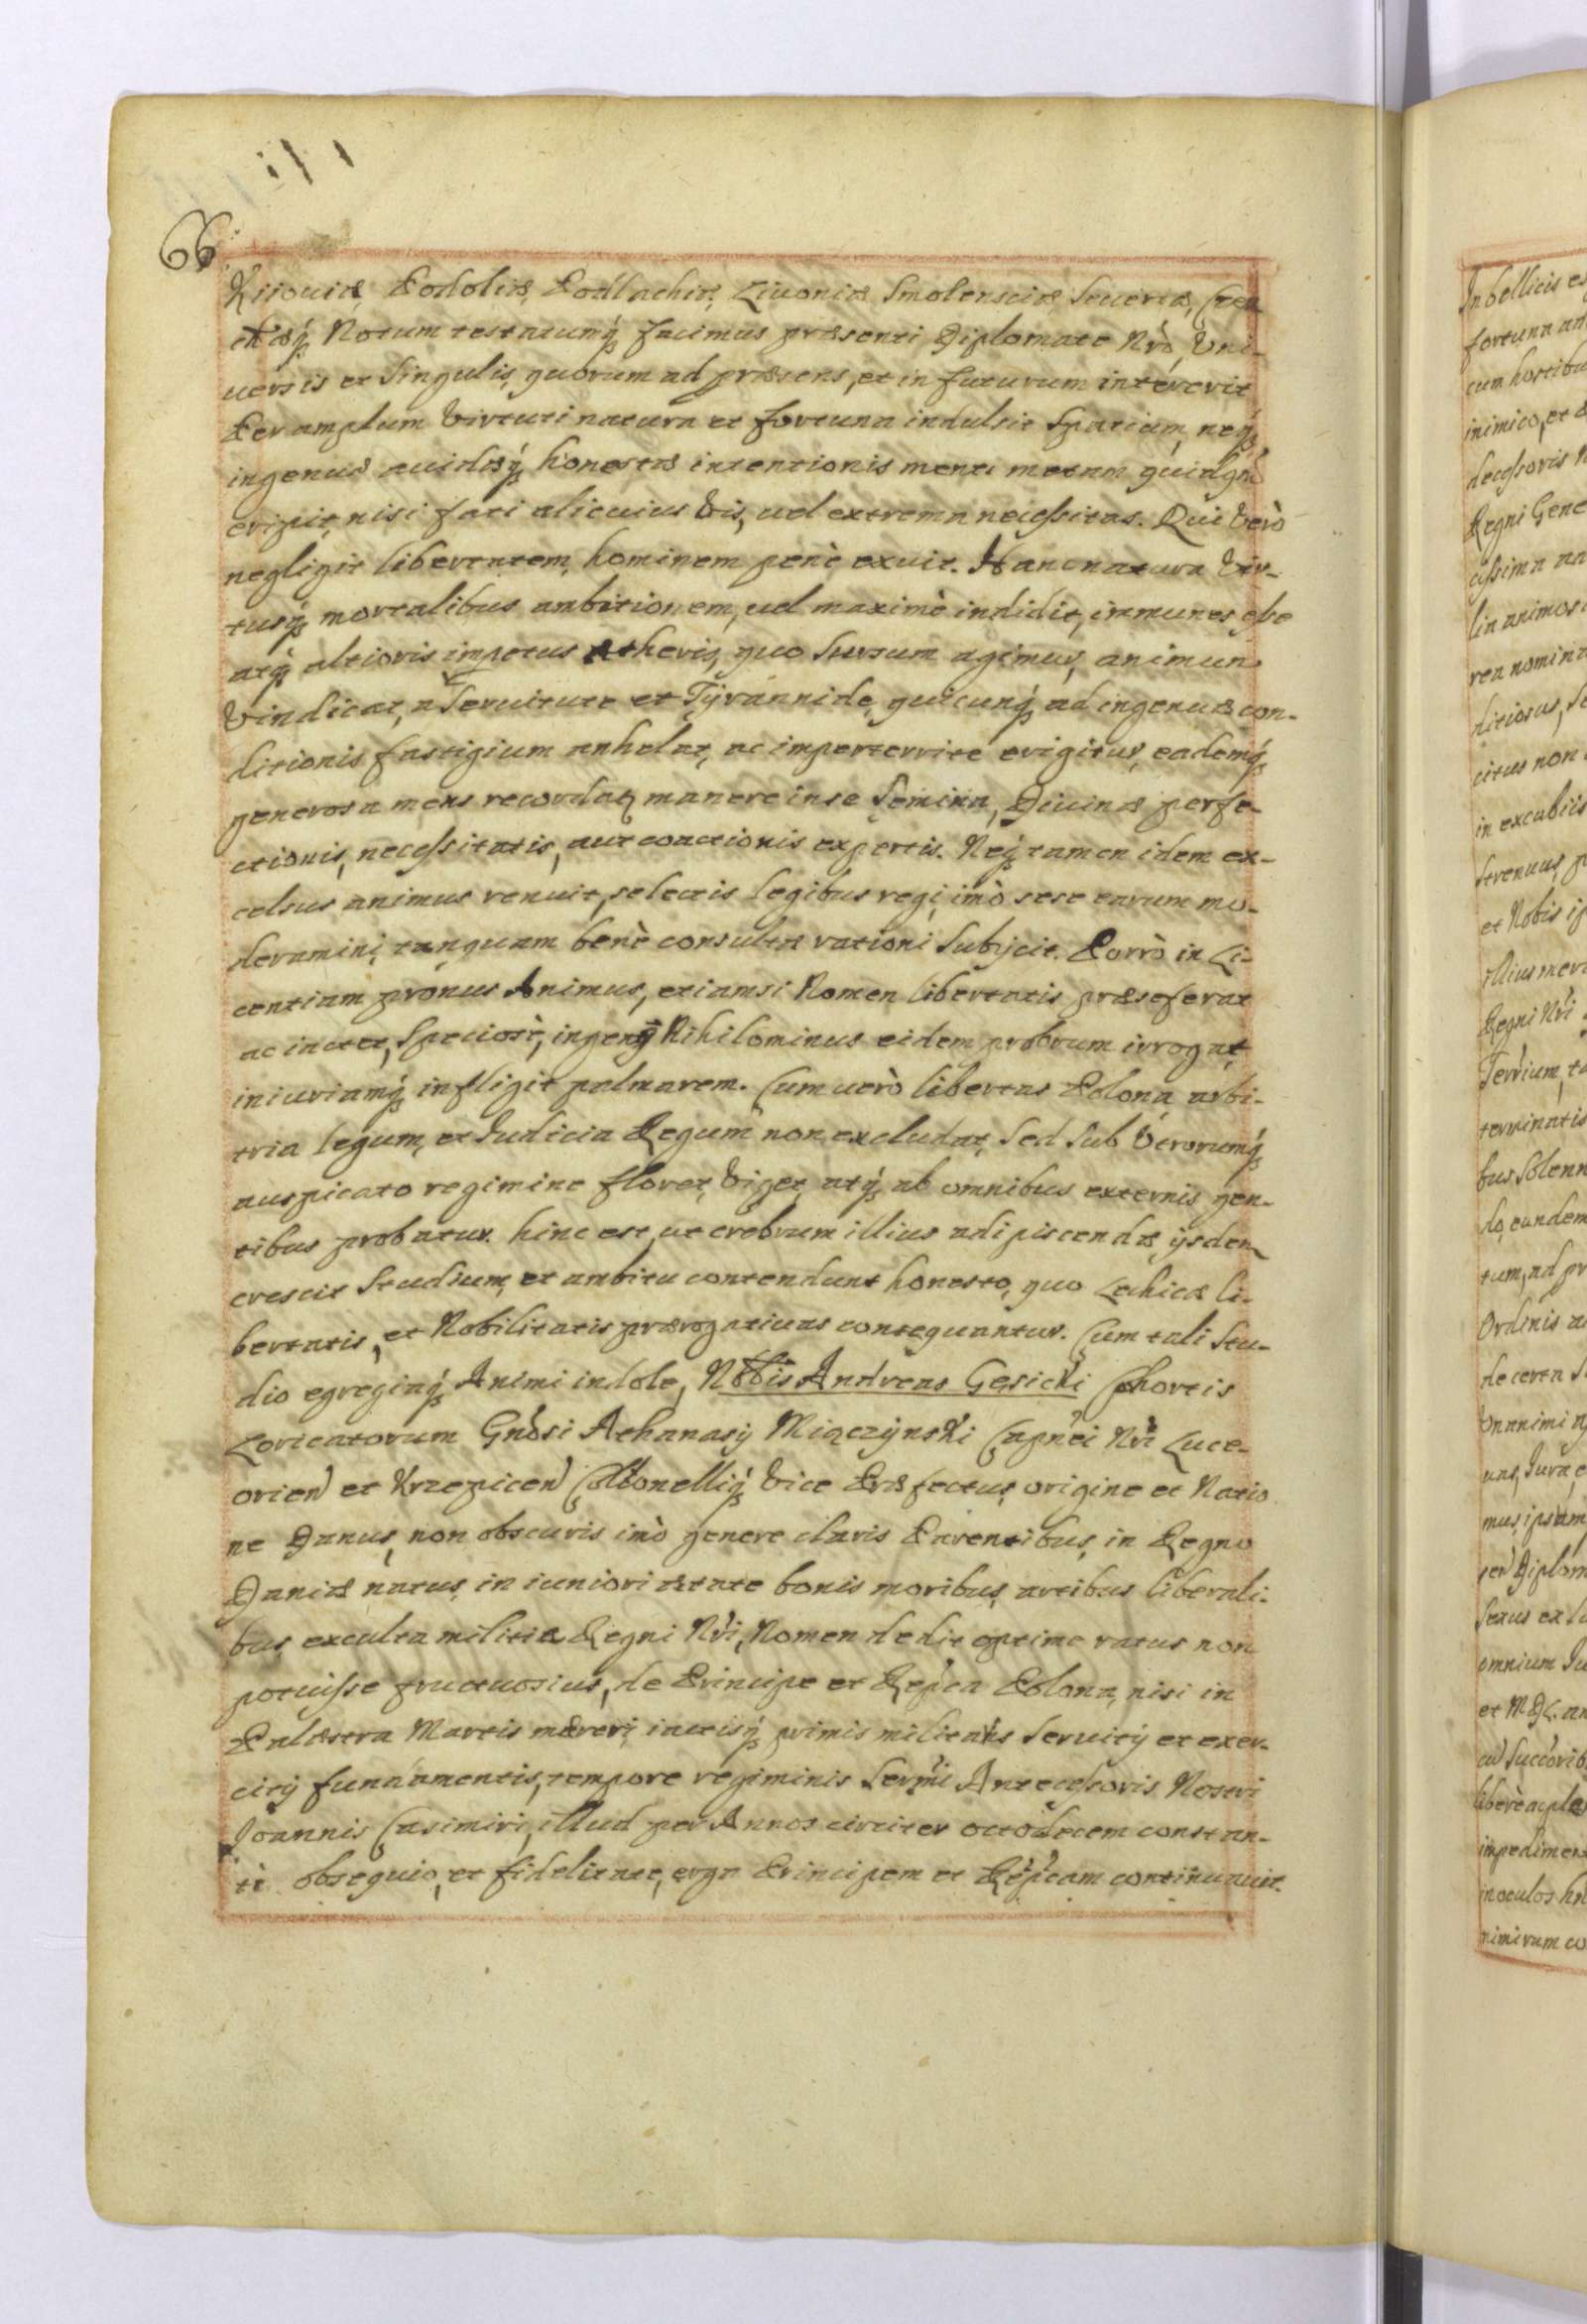 66
Kiioviæ Podoliæ, Podlachiæ, Livoniæ Smolensciæ, Severiæ, Czer
chæq́ȝ Notum testatumq́ȝ facimus præsenti Diplomate Nrò, Uni-
uersis et Singulis, quorum ad præsens, et in futurum intererit
Per amplum Virtuti natura et fortuna indulsit Spatium, neq́ȝ
ingenuæ auidæq́ȝ honestæ intentionis menti metam
eripit, nisi fati alicuius Vis, uel extrema necessitas. Qui Verò
negligit libertatem, hominem penè exuit. Hanc natura Vir-
tusq́ȝ mortalibus ambitionem, uel maximè indidit, immunes
atq́ȝ altioris impetus ætheriq, quo Sursum agimur, animum
Vindicat, a Servitute et Tyrannide, quicunq́ȝ ad ingenuæ con-
ditionis fastigium anhelat, ac imperterrite erigitur, eademq́ȝ
generosa mens recordatȝ manere in se Semina, Divinæ perfe-
ctionis, necessitatis, aut coactionis expertis. Neq́ȝ tamen idem ex-
celsus animus renuit, selectis legibus regi, imò sese earum mo-
deramini, tanquam benè consultæ rationi Subijcit. Porrò in Li-
centiam pronus Animus, etiamsi Nomen libertatis præseferat
ac iactet, Speciosè, ingenij Nihilominus eidem probrum irrogat
iniuriamq́ȝ infligit palmarem. Cum uerò libertas Polona arbi-
tria legum, et Iudicia Regum non excludat, Sed Sub Vtrorumq́ȝ
auspicato regimine floret, Viget, atq́ȝ ab omnibus externis gen-
tibus probatur. hinc est, ut crebrum illius adipiscendæ, ijsdem
crescit Studium, et ambitu contendunt honesto, quo Lechicæ li-
bertatis, et Nobilitatis prærogatiuas consequantur. Cum tali Stu-
dio egregiaq́ȝ Animi indole, Nobis Andreas Gęsicki Cohortis
Loricatorum Gnosi Athanasij Miączyński Capnei Nri Luce-
orien et Krzepicen Collonelliq́ȝ Vice Præfectus, origine et Natio
ne Danus, non obscuris imò genere claris Parentibus, in Regno
Daniæ natus, in iuniori ætate bonis moribus, artibus liberali-
bus exculta militiæ Regni Nri, Nomen dedit optime ratus non
potuisse fructuosius, de Principe et Repca Polona, nisi in
Palæstra Martis mæreri, iactisq́ȝ primis militaris Seruitij et exer-
citij fundamentis, tempore regiminis Sermi Antecessoris Nostri
Joannis Casimiri, illud per Annos circiter octodecem constan-
ti obsequio, et fidelitate, erga Principem et Repcam continuauit.